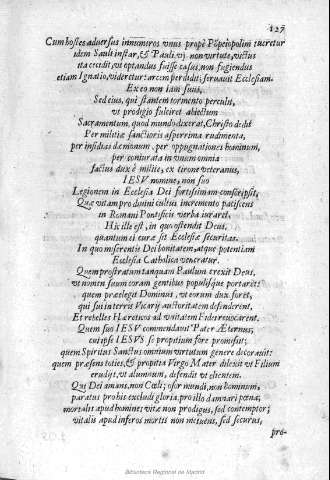 127
Cum hostes aduersus innumeros vnus propè Põpeiopolim tueretur
idem Sauli instar, & Pauli, vi, non virtute, victus
ita cecidit, vt optandus fuisse casus, non fugiendus
etiam Ignatio, videretur: arcem perdidit, seruauit Ecclesiam.
Ex eo non iam suus,
Sed eius, qui stantem tormento perculit,
vt prodigio fulciret abiectum
Sacramentum, quod mundo dixerat, Christo dedit
Per militiæ sanctioris asperrima rudimenta,
per insidias dæmonum, per oppugnationes hominum,
per coniurata in vnum omnia
factus dux è milite, ex tirone veteranus,
IESV nomine, non suo
Legionem in Ecclesia Dei fortissimam conscripsit,
Quæ vitam pro diuini cultus incremento paciscens
in Romani Pontificis verba iuraret,
Hic ille est, in quo ostendit Deus,
quantum ei curæ sit Ecclesiæ securitas.
In quo miserentis Dei bonitatem, atque potentiam
Ecclesia Catholica veneratur.
Quem prostratum tanquam Paulum erexit Deus,
vt nomen suum coram gentibus populisque portaret:
quem præelegit Dominus, vt eorum dux foret,
qui sui in terris Vicarij auctoritatem defenderent,
Et rebelles Hæreticos ad vnitatem Fidei reuocarent.
Quem suo IESV commendauit Pater Æternus,
cui ipse IESVS se propitium fore promisit;
quem Spiritus Sanctus omnium virtutum genere decorauit:
quem præsens toties, & propitia Virgo Mater dilexit vt Filium
erudijt, vt alumnum, defendit vt clientem.
Qui Dei amans, non Cœli; osor mundi, non hominum,
paratus pro his excludi gloria, pro illo damnari pœna;
mortalis apud homines vitæ non prodigus, sed contemptor;
vitalis apud inferos mortis non metuens, sed securus,
pro-
Biblioteca Regional de Madrid